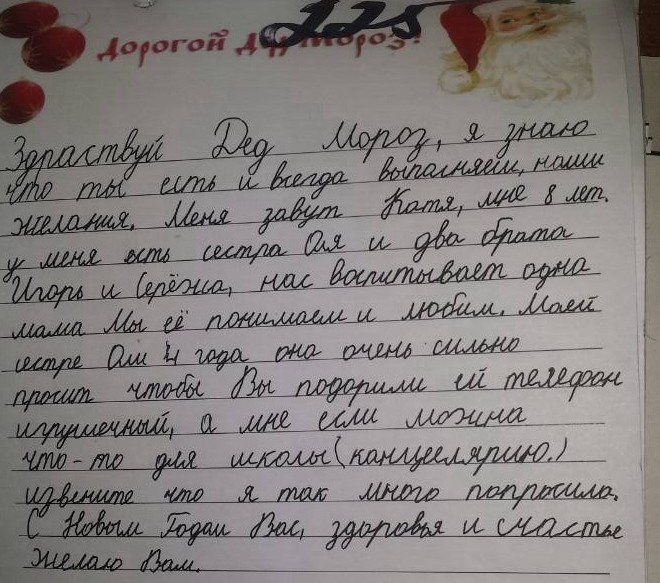 225
Дорогой Дед Мороз!
Здраствуй Дед Мороз, я знаю
что ты есть и всегда выпасняеш, наши
желания. Меня завут Катя, мне 8 лет.
у меня есть сестра Оля и два брата
Игорь и Серёжа, нас воспитывает одна
мама Мы её понимаем и любим. Моей
сестре Оли 4 года она очень сильно
просит чтобы Вы подорили ей телефон
игрушечный, а мне если можна
что-то для школы (канцелярию.)
извените что я так много попросила.
С Новым Годам Вас, здоровья и счастье
желаю Вам.